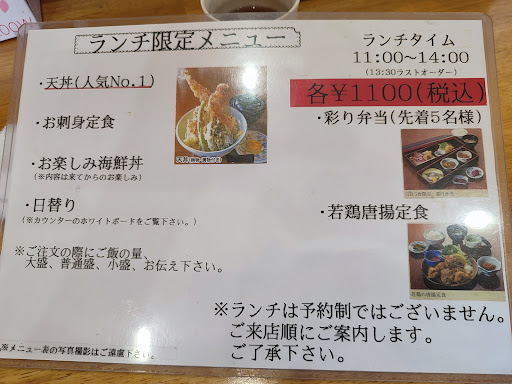 ランチ限定メニュー
ランチタイム
11:00~14:00
(13:30ラストオーダー)
各¥1100(税込)
・天丼(人気No.1)
・お刺身定食
・お楽しみ海鮮丼
(※内容は来てからのお楽しみ)
・日替り
(※カウンターのホワイトボードをご覧下さい。)
※ご注文の際にご飯の量、
大盛、普通盛、小盛、お伝え下さい。
・彩り弁当(先着5名様)
・若鶏唐揚定食
若鶏の唐揚定食
※ランチは予約制ではございません。
ご来店順にご案内します。
ご了承下さい。
※メニュー表の写真撮影はご遠慮下さい。